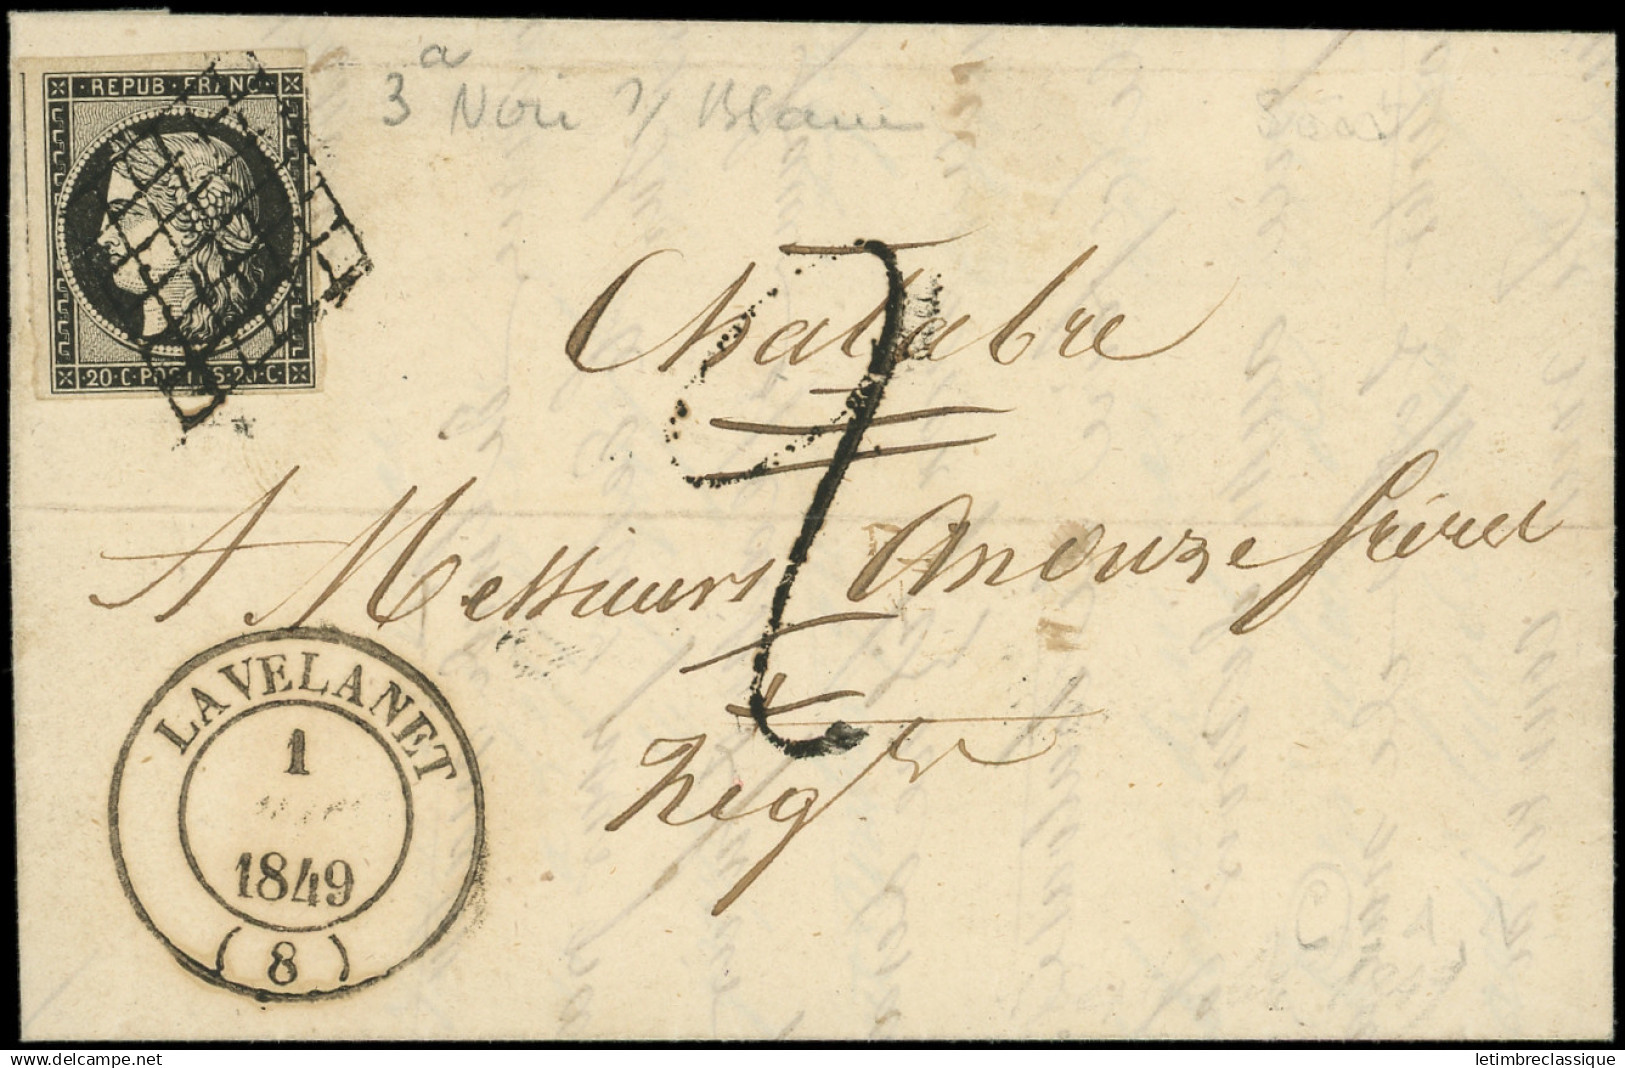 REPUB·FRANC
20·C·POSTES·20·C
3 a Noir s/ Blanc
2
Chalabre
A Messieurs Anouze frères
Neg^ts
LAVELANET
1
1849
(8)
delcampe.net
letimbreclassique